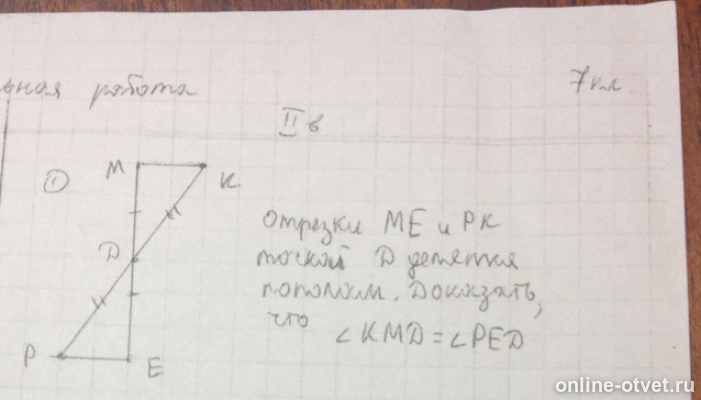 ьная работа
7 кл
II в
①
M
K
D
P
E
отрезки ME и PK
точкой D делятся
пополам. Доказать,
что
∠KMD = ∠PED
online-otvet.ru